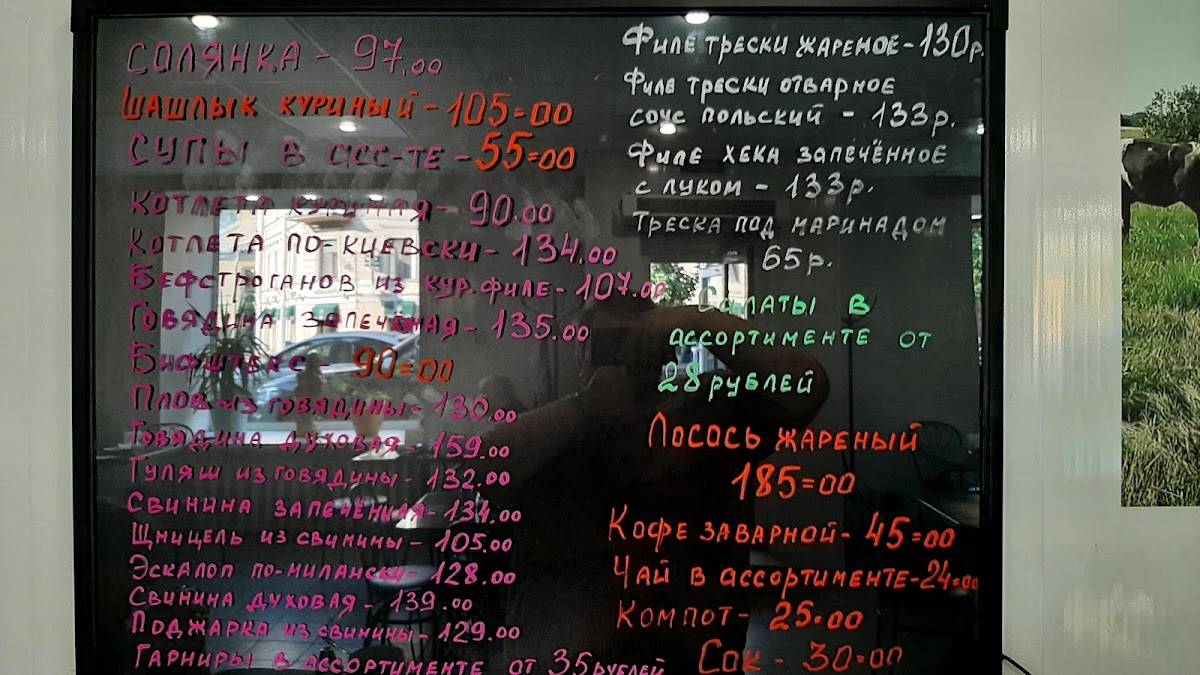 СОЛЯНКА - 97.00
ШАШЛЫК КУРИНЫЙ - 105=00
СУПЫ В АСС-ТЕ - 55=00
КОТЛЕТА КУРИНАЯ - 90.00
КОТЛЕТА ПО-КИЕВСКИ - 134.00
БЕФСТРОГАНОВ ИЗ КУР.ФИЛЕ - 107.00
ГОВЯДИНА ЗАПЕЧЁНАЯ - 135.00
БИФШТЕКС - 90=00
ПЛОВ ИЗ ГОВЯДИНЫ - 130.00
ГОВЯДИНА ДУХОВАЯ - 159.00
ГУЛЯШ ИЗ ГОВЯДИНЫ - 132.00
СВИНИНА ЗАПЕЧЁННАЯ - 134.00
ШНИЦЕЛЬ ИЗ СВИНИНЫ - 105.00
ЭСКАЛОП ПО-МИЛАНСКИ - 128.00
СВИНИНА ДУХОВАЯ - 139.00
ПОДЖАРКА ИЗ СВИНИНЫ - 129.00
ГАРНИРЫ В АССОРТИМЕНТЕ ОТ 35 РУБЛЕЙ
ФИЛЕ ТРЕСКИ ЖАРЕНОЕ - 130р.
ФИЛЕ ТРЕСКИ ОТВАРНОЕ
СОУС ПОЛЬСКИЙ - 133р.
ФИЛЕ ХЕКА ЗАПЕЧЁННОЕ
С ЛУКОМ - 133р.
ТРЕСКА ПОД МАРИНАДОМ
- 65р.
САЛАТЫ В
АССОРТИМЕНТЕ ОТ
28 РУБЛЕЙ
ЛОСОСЬ ЖАРЕНЫЙ
185=00
КОФЕ ЗАВАРНОЙ - 45=00
ЧАЙ В АССОРТИМЕНТЕ - 24=00
КОМПОТ - 25.00
СОК - 30=00